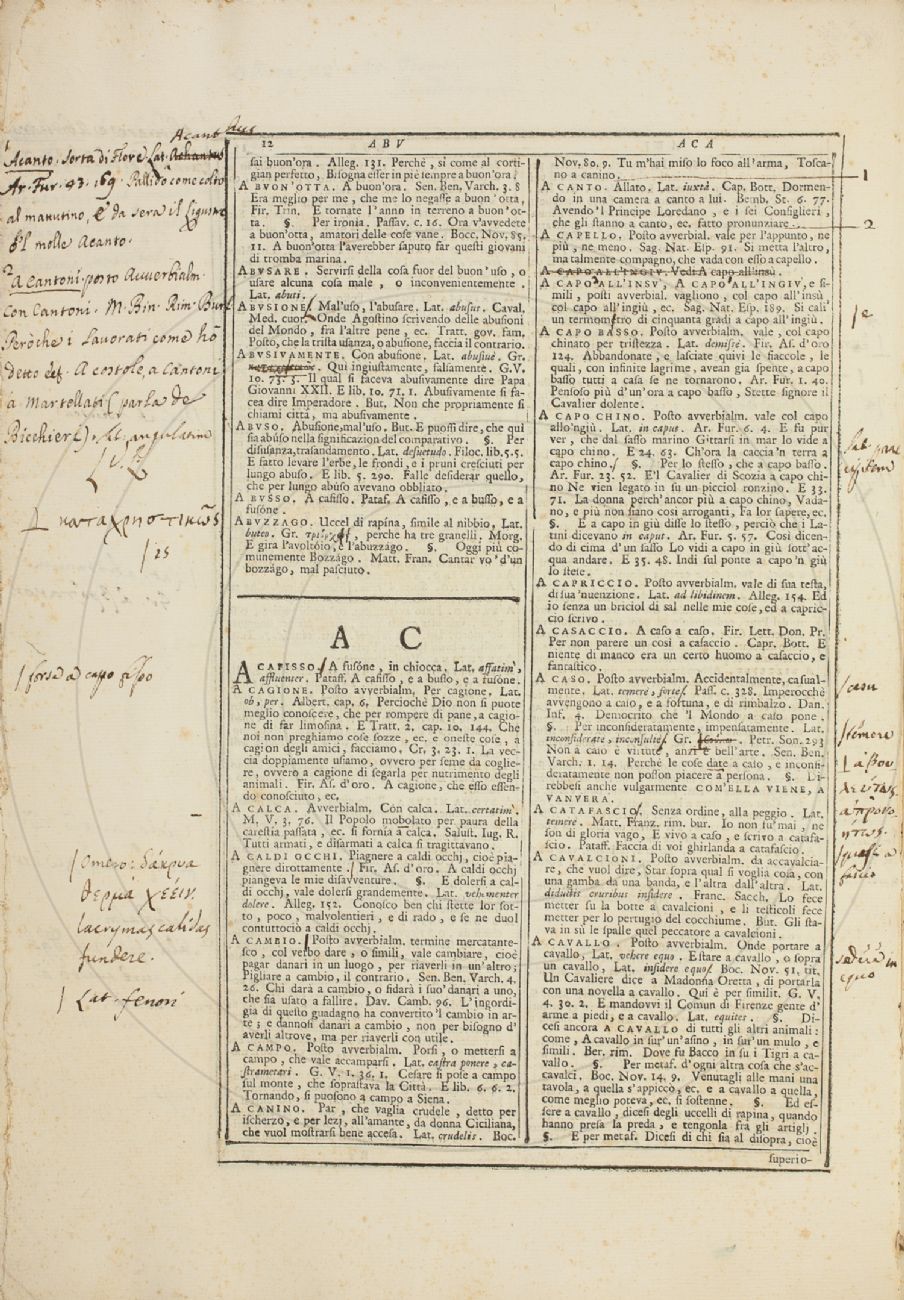 Acant hus
12 ABV ACA
Acanto. Sorta di Fiore. Lat. Achantus
Ar. Fur. 43. 169. Pallido come colto
al matutino, E da sera il Ligustro
Il molle Acanto.
A Cantoni. posto Avverbialm.
con Cantoni. M. Bin. Rim. Burl
Peroche i Lavorati come hò
detto A costole, a Cantoni
a Martellati (parla de
Bicchieri). Lat. angulatim
καταχρηστικῶς
is
forse a capo
Omero: δάκρυα
θερμὰ χέειν.
lacrymas calidas
fundere.
Lat. fenori
sai buon'ora. Alleg. 131. Perchè, sì come al corti-
gian perfetto, Bisogna esser in piè sempre a buon'ora.
A BVON'OTTA. A buon'ora. Sen. Ben. Varch. 3. 8
Era meglio per me, che me lo negasse a buon'otta,
Fir. Trin. E tornate l'anno in terreno a buon'ot-
ta. §. Per ironia. Passav. c. 16. Ora v'avvedete
a buon'otta, amatori delle cose vane. Bocc. Nov. 85.
11. A buon'otta l'averebber saputo far questi giovani
di tromba marina.
ABVSARE. Servirsi della cosa fuor del buon'uso, o
usare alcuna cosa male, o inconvenientemente.
Lat. abuti.
ABVSIONE. Mal'uso, l'abusare. Lat. abusus. Caval.
Med. cuor. Onde Agostino scrivendo delle abusioni
del Mondo, fra l'altre pene, ec. Tratt. gov. fam.
Posto, che la trista usanza, o abusione, faccia il contrario.
ABVSIVAMENTE. Con abusione. Lat. abusivè. Gr.
Qui ingiustamente, falsamente. G. V.
10. 73. 3. Il qual si faceva abusivamente dire Papa
Giovanni XXII. E lib. 10. 71. 1. Abusivamente si fa-
cea dire Imperadore. But. Non che propriamente si
chiami città, ma abusivamente.
ABVSO. Abusione, mal'uso. But. E puossi dire, che quì
sia abuso nella significazion del comparativo. §. Per
disusanza, trasandamento. Lat. desuetudo. Filoc. lib. 5. 5.
E fatto levare l'erbe, le frondi, e i pruni cresciuti per
lungo abuso. E lib. 5. 290. Falle desiderar quello,
che per lungo abuso avevano obbliato.
A BVSSO. A cafisso. Pataf. A cafisso, e a busso, e a
fusóne.
ABVZZAGO. Uccel di rapina, simile al nibbio, Lat.
buteo. Gr. perche ha tre granelli. Morg.
E gira l'avoltóio, e l'abuzzago. §. Oggi più co-
munemente Bozzágo. Matt. Fran. Cantar vo'd'un
bozzágo, mal pasciuto.
A C
A CAFISSO. A fusóne, in chiocca. Lat. affatim,
affluenter. Pataff. A cafisso, e a busso, e a fusóne.
A CAGIONE. Posto avverbialm. Per cagione. Lat.
ob, per. Albert. cap. 6. Percioche Dio non si puote
meglio conoscere, che per rompere di pane, a cagio-
ne di far limosina. E Tratt. 2. cap. 10. 144. Che
noi non preghiamo cose sozze, ec. e oneste cose, a
cagion degli amici, facciamo. Cr. 3. 23. 1. La vec-
cia doppiamente usiamo, ovvero per seme da coglie-
re, ovvero a cagione di segarla per nutrimento degli
animali. Fir. As. d'oro. A cagione, che esso essen-
do conosciuto, ec.
A CALCA. Avverbialm. Con calca. Lat. certatim.
M. V. 3. 76. Il Popolo mobolato per paura della
carestia passata, ec. si fornía a calca. Salust. Iug. R.
Tutti armati, e disarmati a calca si tragittavano.
A CALDI OCCHI. Piagnere a caldi occhj, cioè pia-
gnere dirottamente. Fir. As. d'oro. A caldi occhj
piangeva le mie disavventure. §. E dolersi a cal-
di occhj, vale dolersi grandemente. Lat. vehementer
dolere. Alleg. 152. Conosco ben chi stette lor sot-
to, poco, malvolentieri, e di rado, e se ne duol
contuttociò a caldi occhj.
A CAMBIO. Posto avverbialm. termine mercatante-
sco, col verbo dare, o simili, vale cambiare, cioè
pagar danari in un luogo, per riaverli in un'altro;
Pigliare a cambio, il contrario. Sen. Ben. Varch. 4.
26. Chi darà a cambio, o fidarà i suo'danari a uno,
che sia usato a fallire. Dav. Camb. 96. L'ingordi-
gia di questo guadagno ha convertito'l cambio in ar-
te; e dannosi danari a cambio, non per bisogno d'
averli altrove, ma per riaverli con utile.
A CAMPO. Posto avverbialm. Porsi, o mettersi a
campo, che vale accamparsi. Lat. castra ponere, ca-
strametari. G. V. 1. 36. 1. Cesare si pose a campo
sul monte, che soprastava la Città. E lib. 6. 6. 2.
Tornando, si puosono a campo a Siena.
A CANINO. Par, che vaglia crudele, detto per
ischerzo, e per lezj, all'amante, da donna Ciciliana,
che vuol mostrarsi bene accesa. Lat. crudelis. Boc.
Nov. 80. 9. Tu m'hai miso lo foco all'arma, Tosca-
no a canino.
A CANTO. Allato. Lat. iuxtà. Cap. Bott. Dormen-
do in una camera a canto a lui. Bemb. St. 6. 77.
Avendo'l Principe Loredano, e i sei Consiglieri,
che gli stanno a canto, ec. fatto pronunziare.
A CAPELLO. Posto avverbial. vale per l'appunto, ne
più, ne meno. Sag. Nat. Esp. 91. Si metta l'altro,
ma talmente compagno, che vada con esso a capello.
A CAPO ALL'INGIV. Vedi A capo all'insù.
A CAPO ALL'INSV', A CAPO ALL'INGIV, e si-
mili, posti avverbial. vagliono, col capo all'insù,
col capo all'ingiù, ec. Sag. Nat. Esp. 189. Si calì
un termométro di cinquanta gradi a capo all'ingiù.
A CAPO BASSO. Posto avverbialm. vale, col capo
chinato per tristezza. Lat. demissè. Fir. As. d'oro
124. Abbandonate, e lasciate quivi le fiaccole, le
quali, con infinite lagrime, avean già spente, a capo
basso tutti a casa se ne tornarono. Ar. Fur. 1. 40.
Pensoso più d'un'ora a capo basso, Stette signore il
Cavalier dolente.
A CAPO CHINO. Posto avverbialm. vale col capo
allo'ngiù. Lat. in caput. Ar. Fur. 6. 4. E fu pur
ver, che dal sasso marino Gittarsi in mar lo vide a
capo chino. E 24. 63. Ch'ora la caccia'n terra a
capo chino. §. Per lo stesso, che a capo basso.
Ar. Fur. 23. 52. E'l Cavalier di Scozia a capo chi-
no Ne vien legato in su un picciol ronzino. E 33.
71. La donna perch'ancor più a capo chino, Vada-
no, e più non siano così arroganti, Fa lor sapere, ec.
§. E a capo in giù disse lo stesso, perciò che i La-
tini dicevano in caput. Ar. Fur. 5. 57. Così dicen-
do di cima d'un sasso Lo vidi a capo in giù sott'ac-
qua andare. E 35. 48. Indi sul ponte a capo'n giù
lo stese.
A CAPRICCIO. Posto avverbialm. vale di sua testa,
di sua'nuenzione. Lat. ad libidinem. Alleg. 154. Ed
io senza un briciol di sal nelle mie cose, ed a capric-
cio scrivo.
A CASACCIO. A caso a caso. Fir. Lett. Don. Pr.
Per non parere un così a casaccio. Capr. Bott. E
niente di manco era un certo huomo a casaccio, e
fantastico.
A CASO. Posto avverbialm. Accidentalmente, casual-
mente. Lat. temerè, fortes. Pass. c. 328. Imperocchè
avvengono a caso, e a fortuna, e di rimbalzo. Dan.
Inf. 4. Democrito che 'l Mondo a caso pone.
§. Per inconsideratamente, impensatamente. Lat.
inconsiderate, inconsultè. Gr. Petr. Son. 293
Non a caso è virtute, anzi è bell'arte. Sen. Ben.
Varch. 1. 14. Perchè le cose date a caso, e inconsi-
deratamente non posson piacere a persona. §. Di-
rebbesi anche vulgarmente COM'ELLA VIENE, A
VANVERA.
A CATAFASCIO. Senza ordine, alla peggio. Lat.
temere. Matt. Franz. rim. bur. Io non fu'mai, ne
son di gloria vago, E vivo a caso, e scrivo a catafa-
scio. Pataff. Faccia di voi ghirlanda a catafascio.
A CAVALCIONI. Posto avverbialm. da accavalcia-
re, che vuol dire, Star sopra qual si voglia cosa, con
una gamba da una banda, e l'altra dall'altra. Lat.
diductis cruribus insidere. Franc. Sacch. Lo fece
metter su la botte a cavalcioni, e li testicoli fece
metter per lo pertugio del cocchiume. But. Gli sta-
va in sù le spalle quel peccatore a cavalcioni.
A CAVALLO. Posto avverbialm. Onde portare a
cavallo, Lat. vehere equo. E stare a cavallo, o sopra
un cavallo, Lat. insidere equo. Boc. Nov. 51. tit.
Un Cavaliere dice a Madonna Oretta, di portarla
con una novella a cavallo. Quì è per similit. G. V.
4. 30. 2. E mandovvi il Comun di Firenze gente d'
arme a piedi, e a cavallo. Lat. equiter. §. Di-
cesi ancora A CAVALLO di tutti gli altri animali:
come, A cavallo in sur'un'asino, in sur'un mulo, e
simili. Ber. rim. Dove fu Bacco in su i Tigri a ca-
vallo. §. Per metaf. d'ogni altra cosa che s'ac-
cavalci. Boc. Nov. 14. 9. Venutagli alle mani una
tavola, a quella s'appiccò, ec. e a cavallo a quella,
come meglio poteva, ec. si sostenne. §. Ed es-
sere a cavallo, dicesi degli uccelli di rapina, quando
hanno presa la preda, e tengonla fra gli artigli.
§. E per metaf. Dicesi di chi sia al disopra, cioè
superio-
1
2
e
casu
temere
ἀβου
λεύτως
ἀπρονο
ήτως.
quasi a
fascio
sedere in
equo